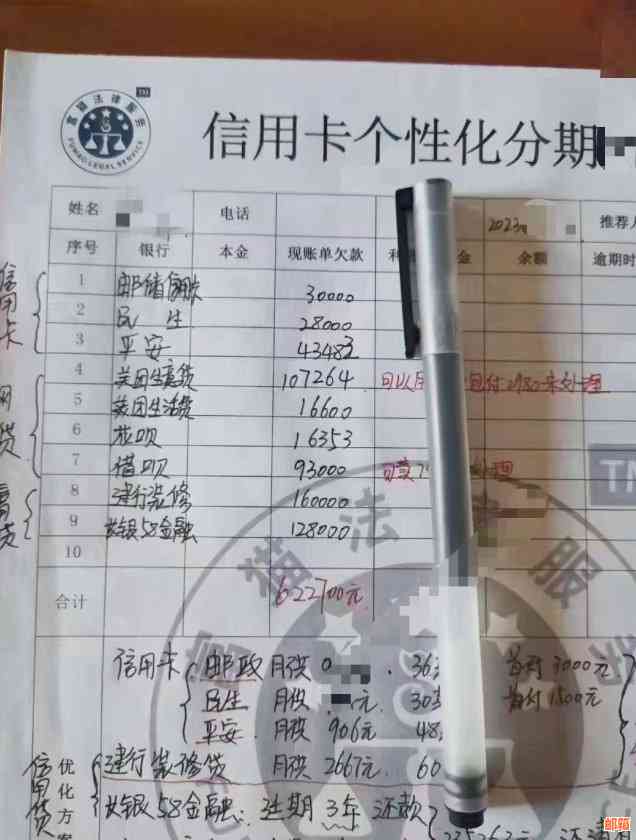 TM
富猫法律服务
FUMAO LEGAL SERVICE
信用卡个性化分期
姓名 电话 2023 推荐人
序号 银行 本金 现账单欠款 金 余额 逾期时
信用卡
1 邮储 30000
2 民生 28000
3 平安 43483
网贷
4 美团生意贷 107264 可以 2980来处理
5 美团生活贷 16600
6 花呗 16353
7 借呗 93000 理
8 建行装修 160000
9 长银58金融 128000
10
TM
合计 622700元
富猫法律服务
信用卡 邮政 月供 36 首付3000元
民生 月供 元 30 首付1500元
平安 月供 906元 48
信用贷
优化方案
建行装修贷 月供 2667元 60
长银58金融: 延期3年还款
邮箱